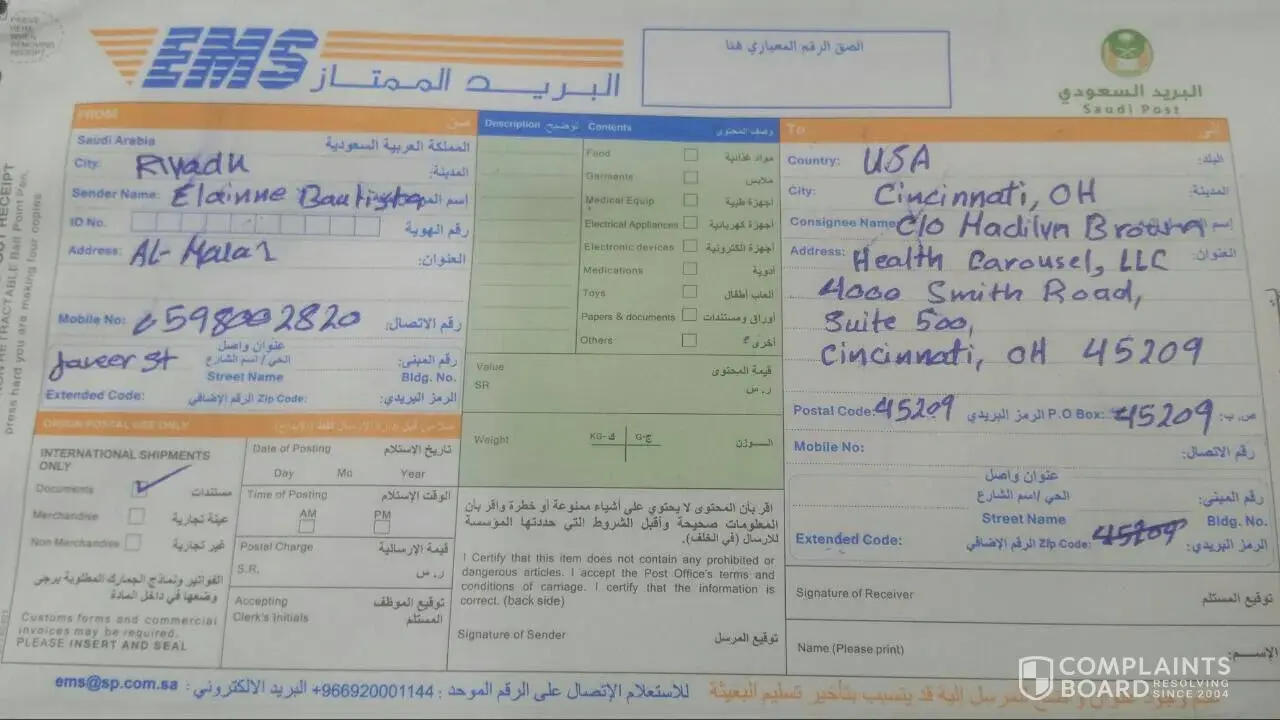 PRESS
HERE
WHEN
REMOVING
RECEIPT
EMS البريد الممتاز
الصق الرقم المعياري هنا
البريد السعودي
Saudi Post
FROM من
Saudi Arabia المملكة العربية السعودية
City: Riyadh المدينة:
Sender Name: Elainne
ID No. رقم الهوية
Address: AL-Malaz العنوان:
Mobile No: 0598002820 رقم الاتصال:
عنوان واصل
Javeer st الحي / اسم الشارع رقم المبنى:
Street Name Bldg. No.
Extended Code: الرقم الإضافي Zip Code: الرمز البريدي:
Description توضيح Contents وصف المحتوى
Food مواد غذائية
Garments ملابس
Medical Equip أجهزة طبية
Electrical Appliances أجهزة كهربائية
Electronic devices أجهزة الكترونية
Medications أدوية
Toys العاب أطفال
Papers & documents أوراق ومستندات
Others أخرى
Value قيمة المحتوى
SR ر.س
Weight KG-ك G-ج الـــوزن
To إلى
Country: USA البلد:
City: Cincinnati, OH المدينة:
Consignee Name c/o Madilyn Brown
Address: Health Carousel, LLC العنوان:
4000 Smith Road,
Suite 500,
Cincinnati, OH 45209
Postal Code: 45209 الرمز البريدي P.O Box: 45209 ص.ب:
Mobile No: رقم الاتصال:
عنوان واصل
الحي /اسم الشارع رقم المبنى:
Street Name Bldg. No.
Extended Code: الرقم الإضافي Zip Code: 45209 الرمز البريدي:
ORIGIN POSTAL USE ONLY
INTERNATIONAL SHIPMENTS
ONLY
Documents مستندات
Merchandise عينة تجارية
Non Merchandise غير تجارية
الفواتير ونماذج الجمارك المطلوبة يرجى
وضعها في داخل المادة
Customs forms and commercial
invoices may be required.
PLEASE INSERT AND SEAL
Date of Posting تاريخ الاستلام
Day Mo Year
Time of Posting الوقت الإستلام
AM PM
Postal Charge قيمة الإرسالية
S.R. ر.س
Accepting توقيع الموظف
Clerk's Initials المستلم
اقر بأن المحتوى لا يحتوي على أشياء ممنوعة أو خطرة واقر بأن
المعلومات صحيحة وأقبل الشروط التي حددتها المؤسسة
للارسال (في الخلف).
I Certify that this item does not contain any prohibited or
dangerous articles. I accept the Post Office's terms and
conditions of carriage. I certify that the information is
correct. (back side)
Signature of Sender توقيع المرسل
Signature of Receiver توقيع المستلم
Name (Please print) الإســم:
ems@sp.com.sa للاستعلام الإتصال على الرقم الموحد : 966920001144+ البريد الالكتروني :
المرسل إليه قد يتسبب بتأخير تسليم البعيثة
press hard you are making four copies
COMPLAINTS
BOARD RESOLVING
SINCE 2004